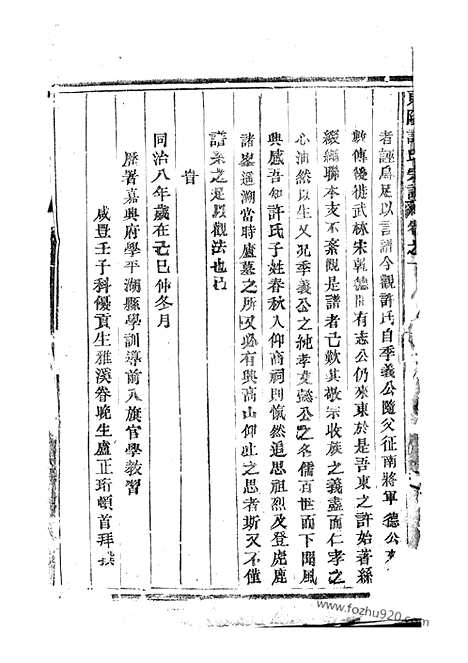 東陽許氏宗譜卷之一
者誣焉足以言譜今觀許氏自季義公隨父征南將軍 德公
數傳後徙武林宋乾德間有志公仍來東於是吾東之許始著綿
綿繩聯本支不紊觀是譜者已歎其敬宗收族之義盡而仁孝之
心油然以生又況季義公之純孝 公之名儒百世而下聞風
興感吾知許氏子姓春秋入仰商祠則愾然追思祖烈及登虎鹿
諸峯遥溯當時廬墓之所又必有興高山仰止之思者斯又不僅
譜系之足以觀法也已
旹
同治八年歲在己巳仲冬月
歷署嘉興府學平湖縣學訓導前八旗官學教習
咸豊壬子科優貢生雅溪眷晚生盧正珩頓首拜撰
www.fozhu920.com